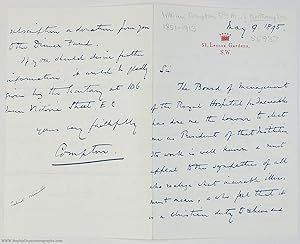 May 9. 1895.
51, Lennox Gardens,
S.W.
Sir
The Board of Management
of the Royal Hospital for Incurable
have done me the honour to elect
me as President of that Institution
Its work is well known & must
appeal to the sympathies of all
who realize what incurable
must mean, & who feel that it
is a christian duty to relieve and
subscription or donation from you
Dinner Fund.
If you should desire further
information it would be gladly
given by the Secretary at 106
Queen Victoria Street E.C.
Yours very faithfully
Compton